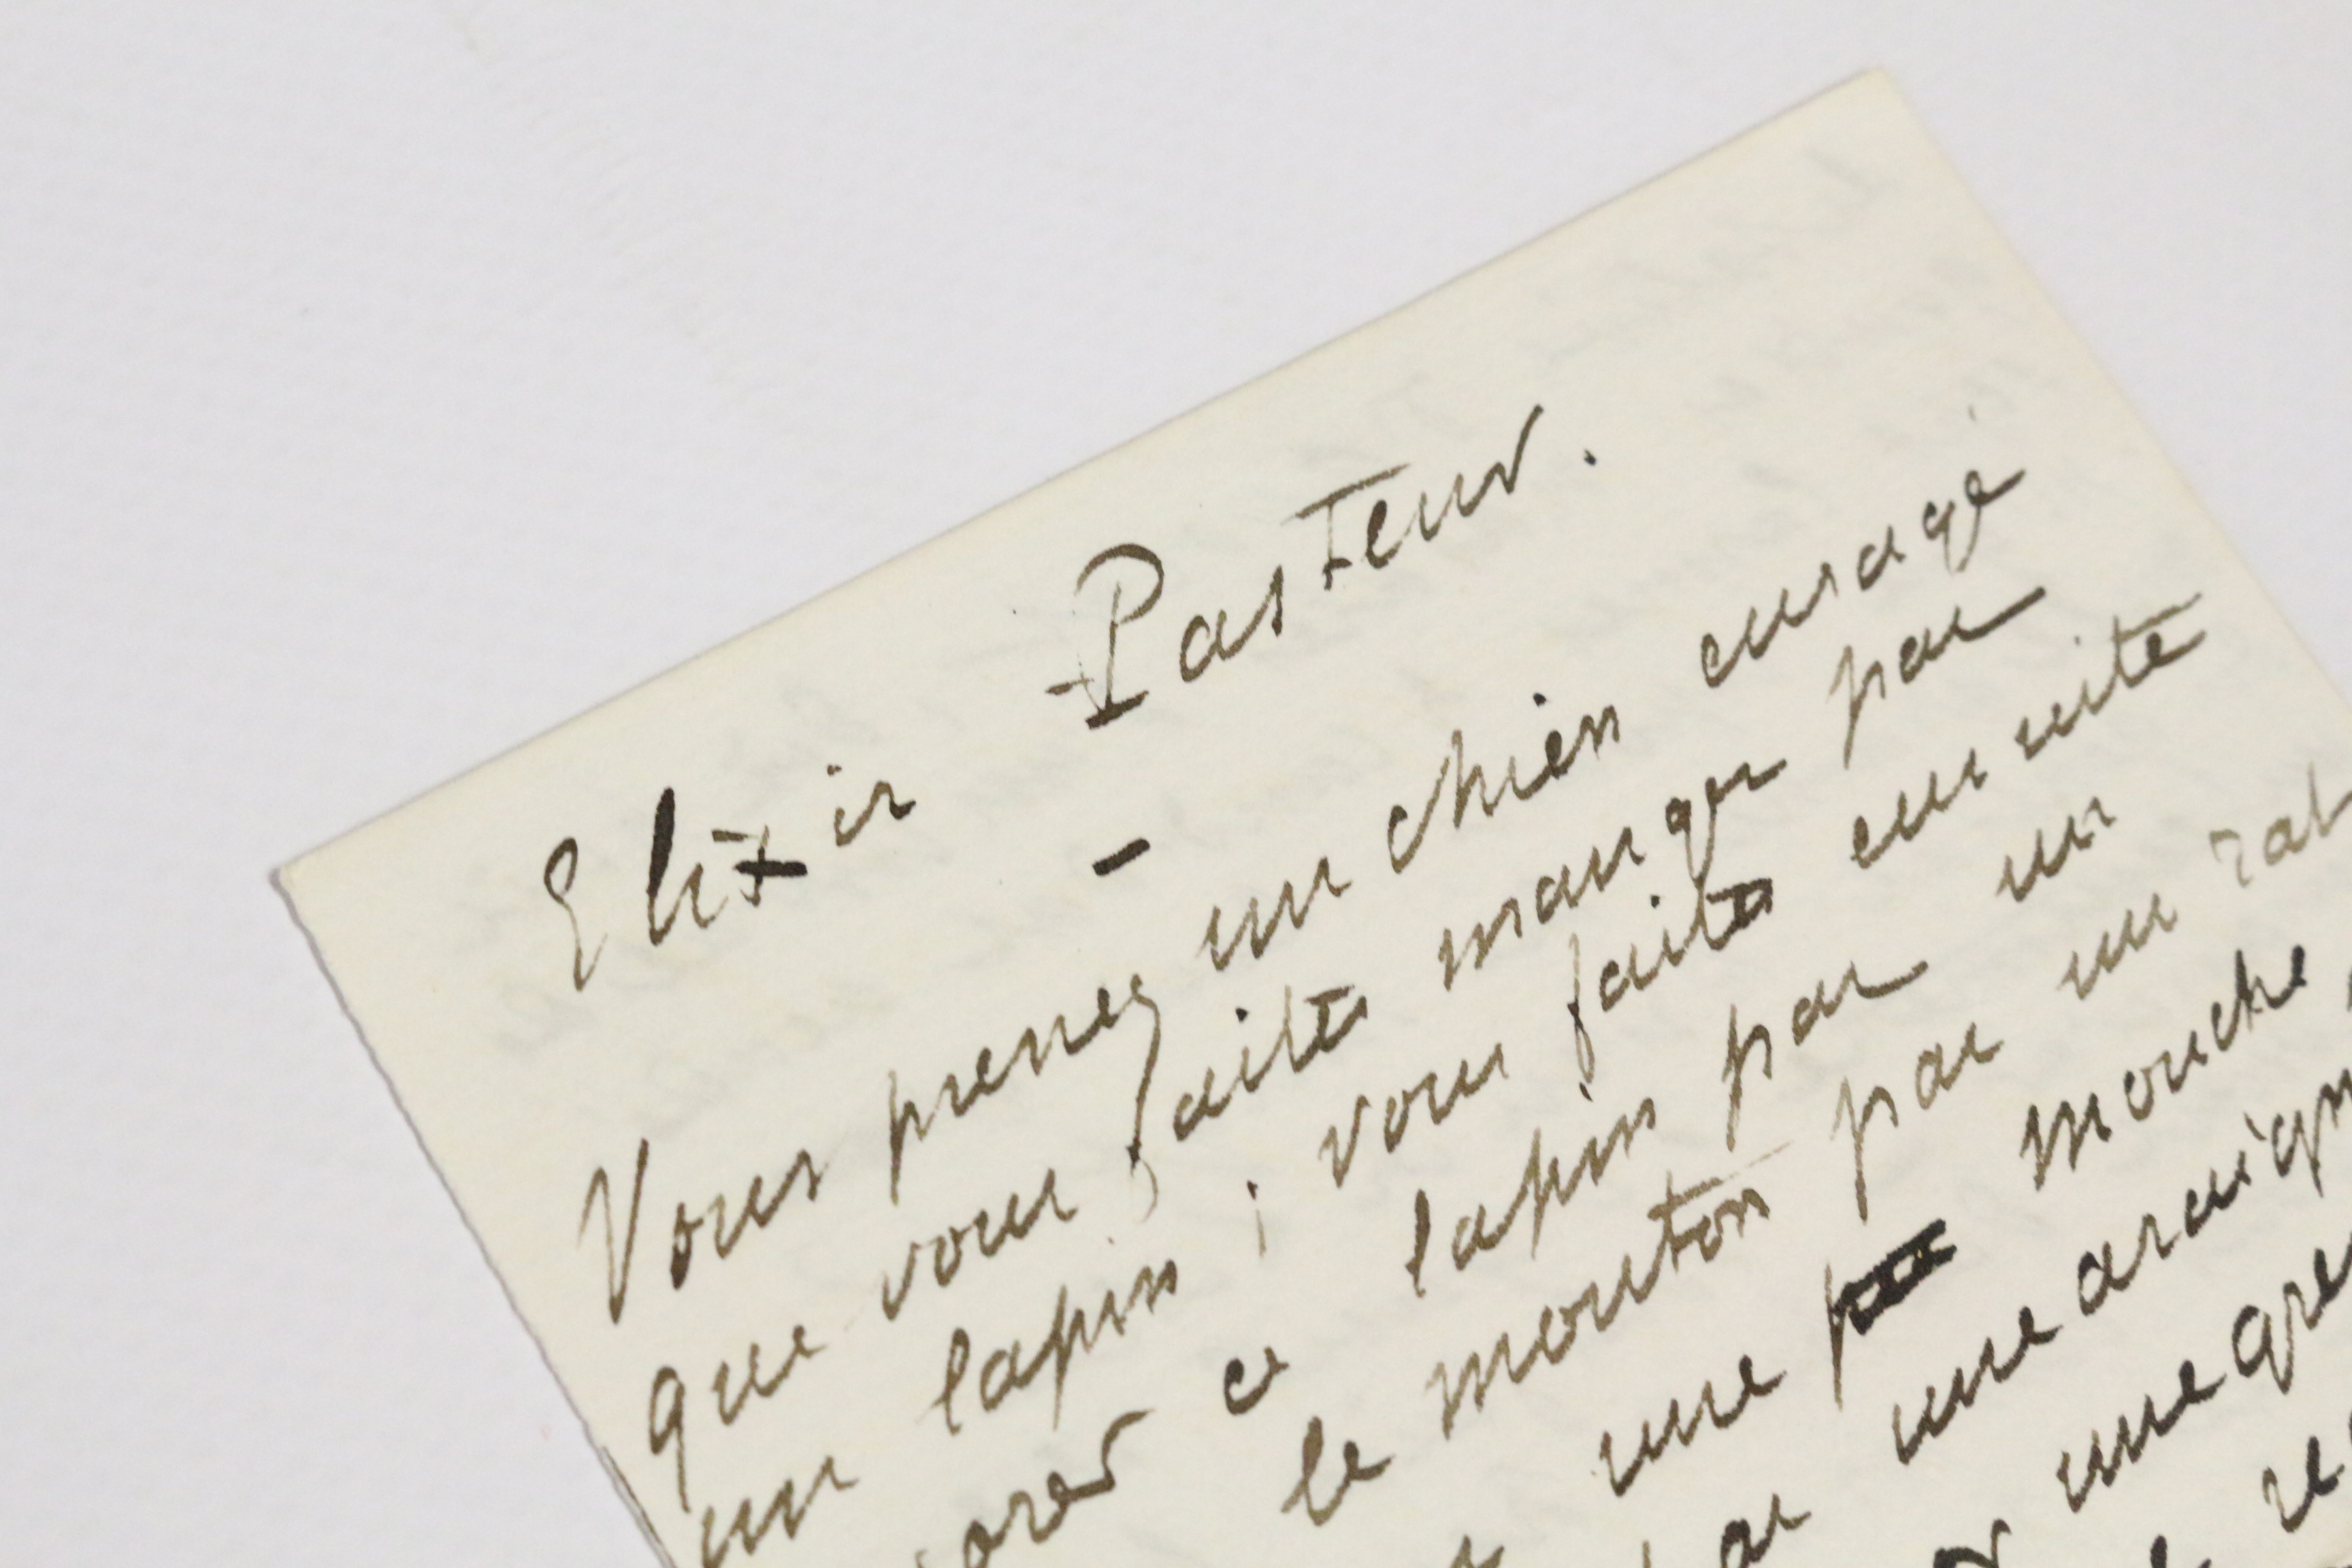 Elixir Pasteur.
–
Vous prenez un chien enragé
que vous faites manger par
un lapin ; vous faites ensuite
ce lapin par un
le mouton par un rat
une mouche
une araign
une gre